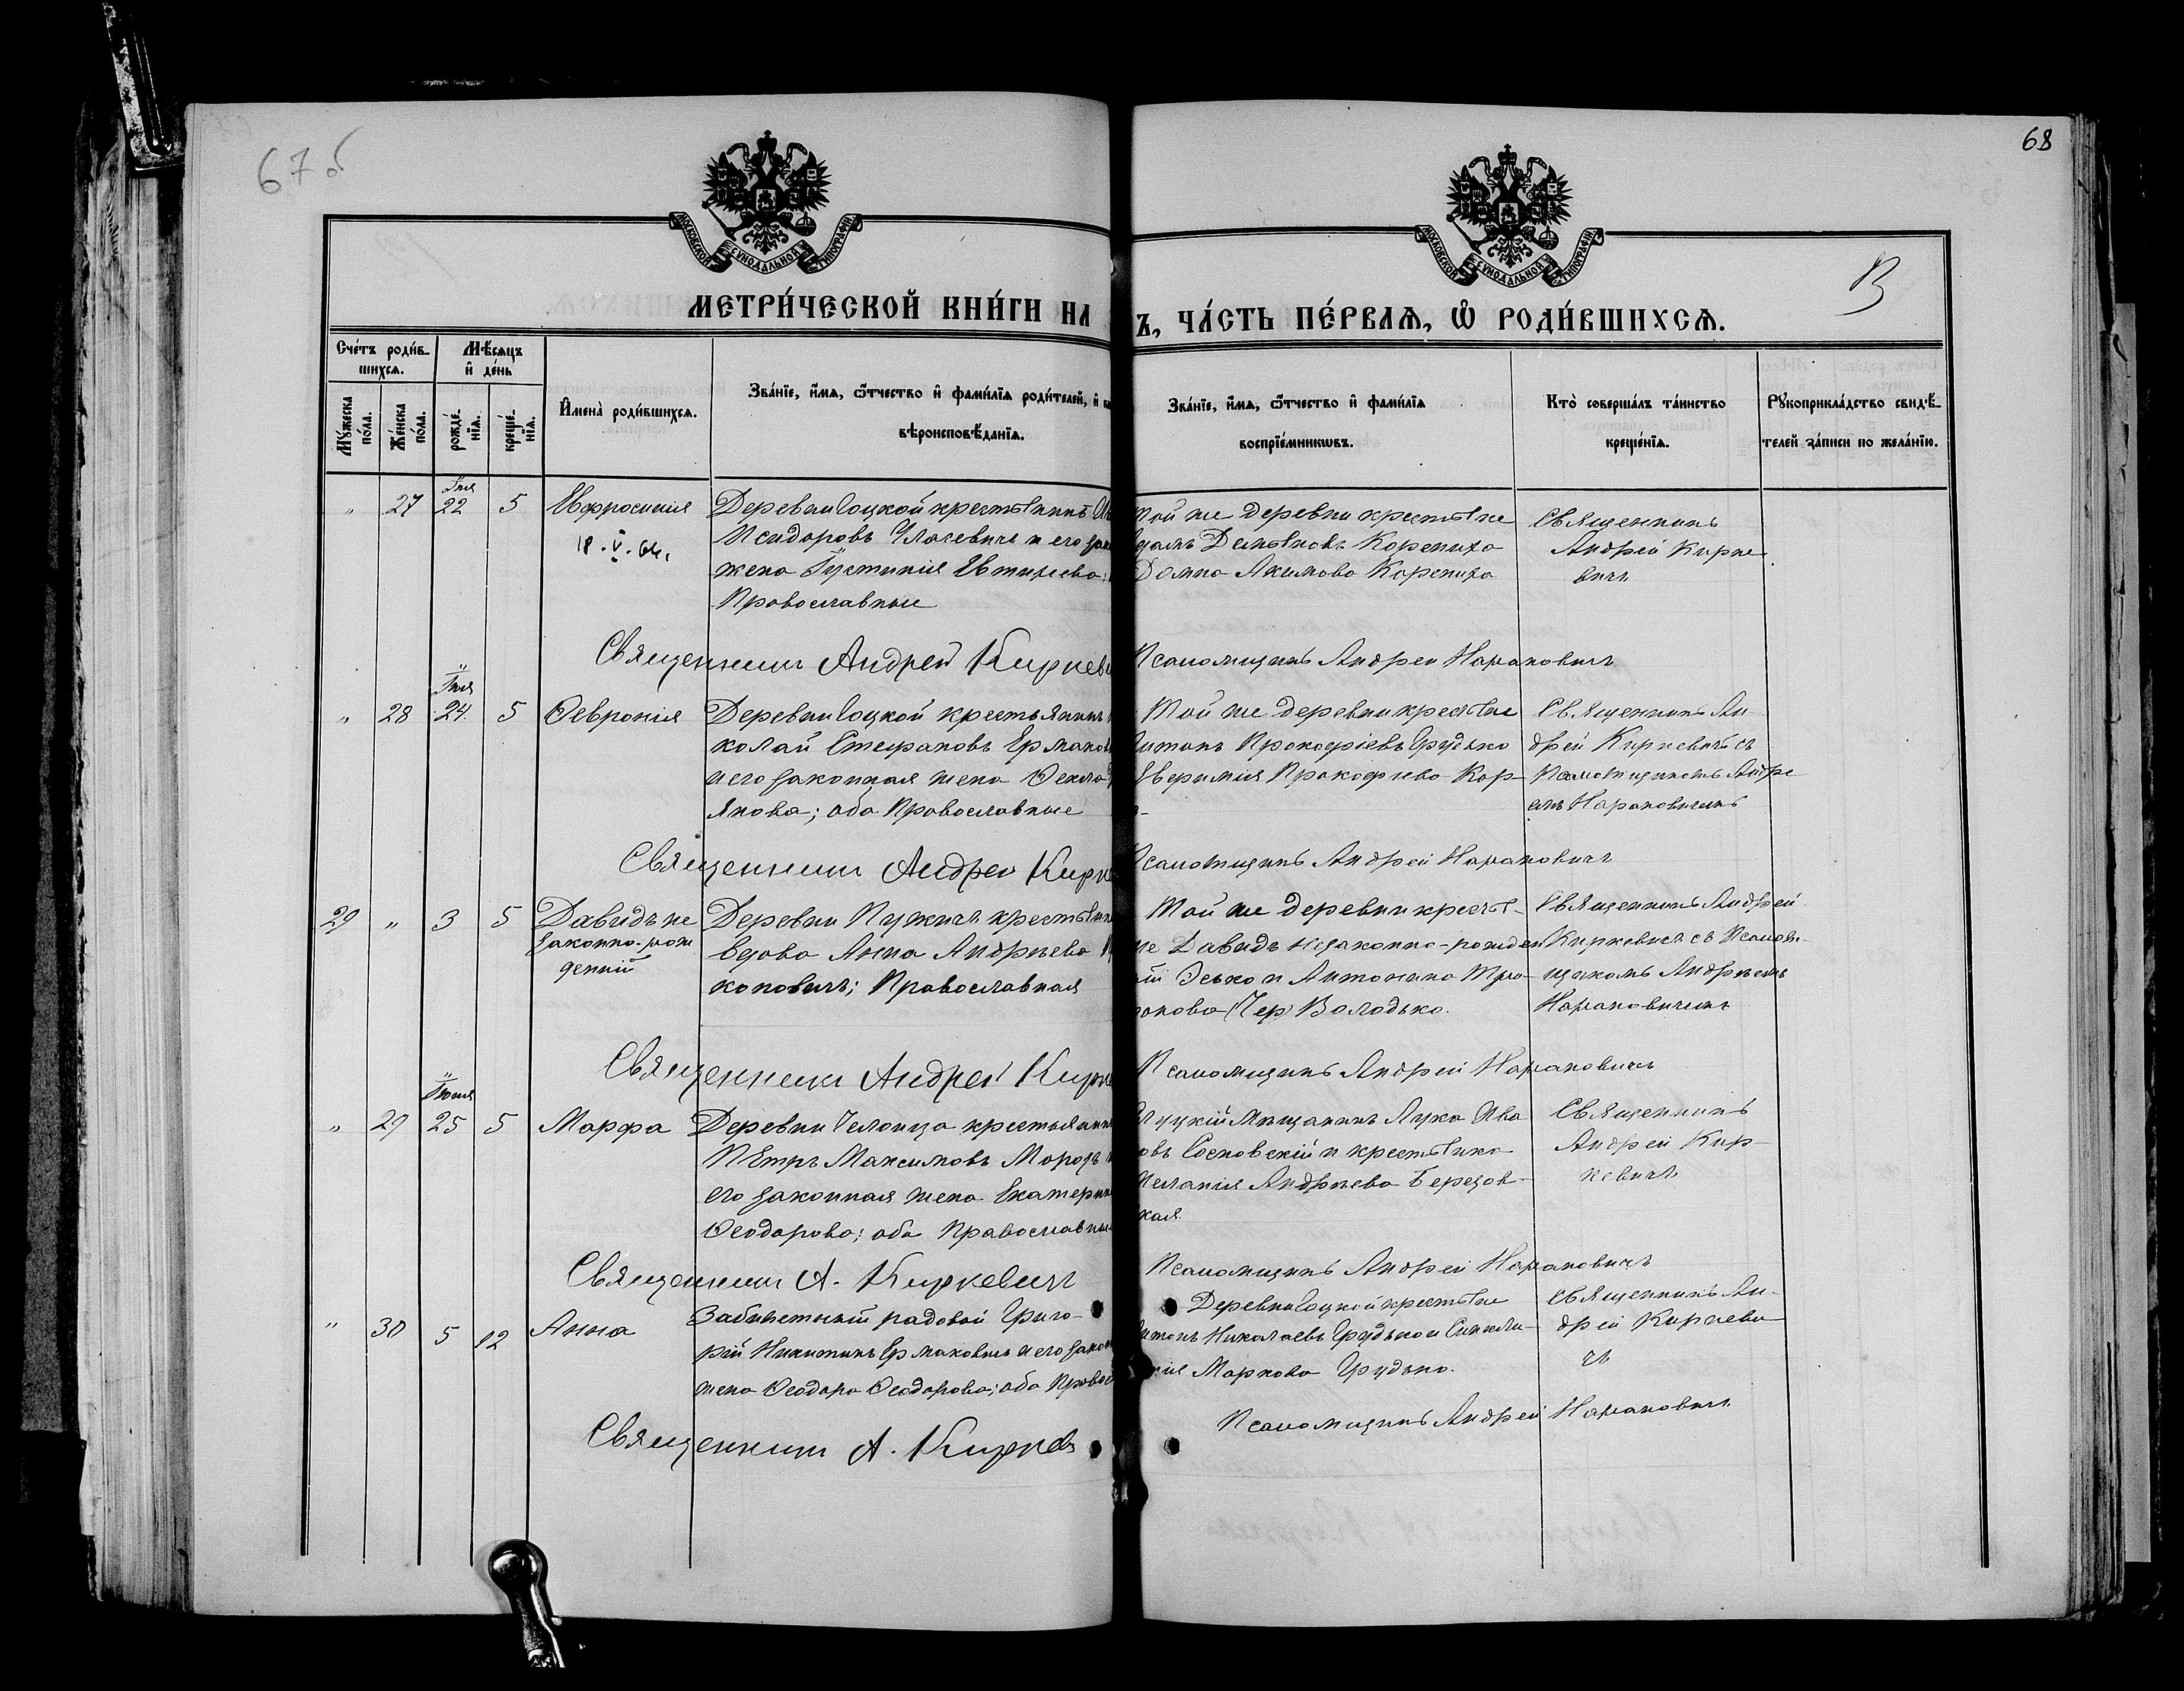 67 об
68
МОСКОВСКОЙ СУНОДАЛЬНОЙ ТИПОГРАФІИ
МОСКОВСКОЙ СУНОДАЛЬНОЙ ТИПОГРАФІИ
В
МЕТРИ́ЧЕСКОЙ КНИ́ГИ НА
Ъ, ЧА́СТЬ ПЕ́РВАѦ, Ѡ҆ РОДИ́ВШИХСѦ.
Сче́тъ роди́в-
шихсѧ.
Мѣ́сѧцъ
и҆ де́нь
Мꙋ́жеска
по́ла.
Же́нска
по́ла.
рожде́-
нїѧ.
креще́-
нїѧ.
И҆мена̀ роди́вшихсѧ.
Зва́нїе, и҆́мѧ, ѻ҆́тчество и҆ фами́лїѧ роди́телей, и҆
вѣроисповѣ́данїѧ.
Зва́нїе, и҆́мѧ, ѻ҆́тчество и҆ фами́лїѧ
воспрїе́мникѡвъ.
Кто̀ соверша́лъ та́инство
креще́нїѧ.
Рꙋкоприкла́дство свидѣ́-
телей за́писи по жела́нїю.
" 27 22 5 Евфросинія Деревни Гоцкой крестьянинъ
18.V.64. Исидоровъ и его зак
жена Іустинія Евтихіева;
Православные
той же деревни крестьяне
Адамъ Демьяновъ Коренихо
Домна Акимова Коренихо
Священникъ
Андрей Кирке
вичъ
Священникъ Андрей Киркеви
Псаломщикъ Андрей Нарановичъ
" 28 24 5 Февронія Деревни Гоцкой крестьянинъ
колай Стефановъ Ермакови
и его законная жена Фекла
Якова; оба Православные
Той же деревни крестьяне
Антонъ Прокофіевъ Грудько
Прокофіева Кор-
Священникъ Ан-
дрей Киркевичъ съ
Псаломщикомъ Андре
емъ Нарановичемъ
Священникъ Андрей Кирке
Псаломщикъ Андрей Нарановичъ
29 " 3 5 Давидъ не
законно-рож
денный
Деревни Пужичъ крестьянк
вдова Анна Андреева
коновичъ; Православная
Той же деревни крестья-
не Давидъ незаконно-рожден
ный Эсько и Антонина
Володько.
Священникъ Андрей
Киркевичъ съ Псалом-
щикомъ Андреемъ
Нарановичемъ
Священникъ Андрей Кирке
Псаломщикъ Андрей Нарановичъ
" 29 Іюня 25 5 Марфа Деревни крестьянинъ
Петръ Максимовъ Морозъ и
его законная жена Екатерин
Феодорова; оба Православные
Слуцкій мѣщанинъ Лука Ива
новъ Сосновскій и крестьянка
Меланія Андреева Березов-
ская
Священникъ
Андрей Кир-
кевичъ
Священникъ А. Киркевичъ
Псаломщикъ Андрей Нарановичъ
" 30 5 12 Анна рядовой Григо-
рій Никитинъ Ермаковичъ и его закон
жена Феодора Феодорова; оба Правос
Деревни Гоцкой крестьяне
Антонъ Николаевъ Грудько и Синкли-
тикія Маркова Грудько.
Священникъ Ан-
дрей Киркеви-
чъ
Священникъ А. Киркев
Псаломщикъ Андрей Нарановичъ